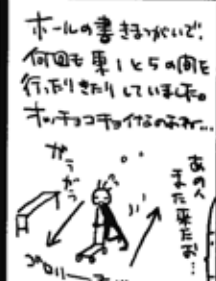 ホールの書きまちがいで、
何回も東1と5の間を
行ったりきたりしていました。
オッチョコチョイなのよね…
ガラガラ
あの人
また来たお…